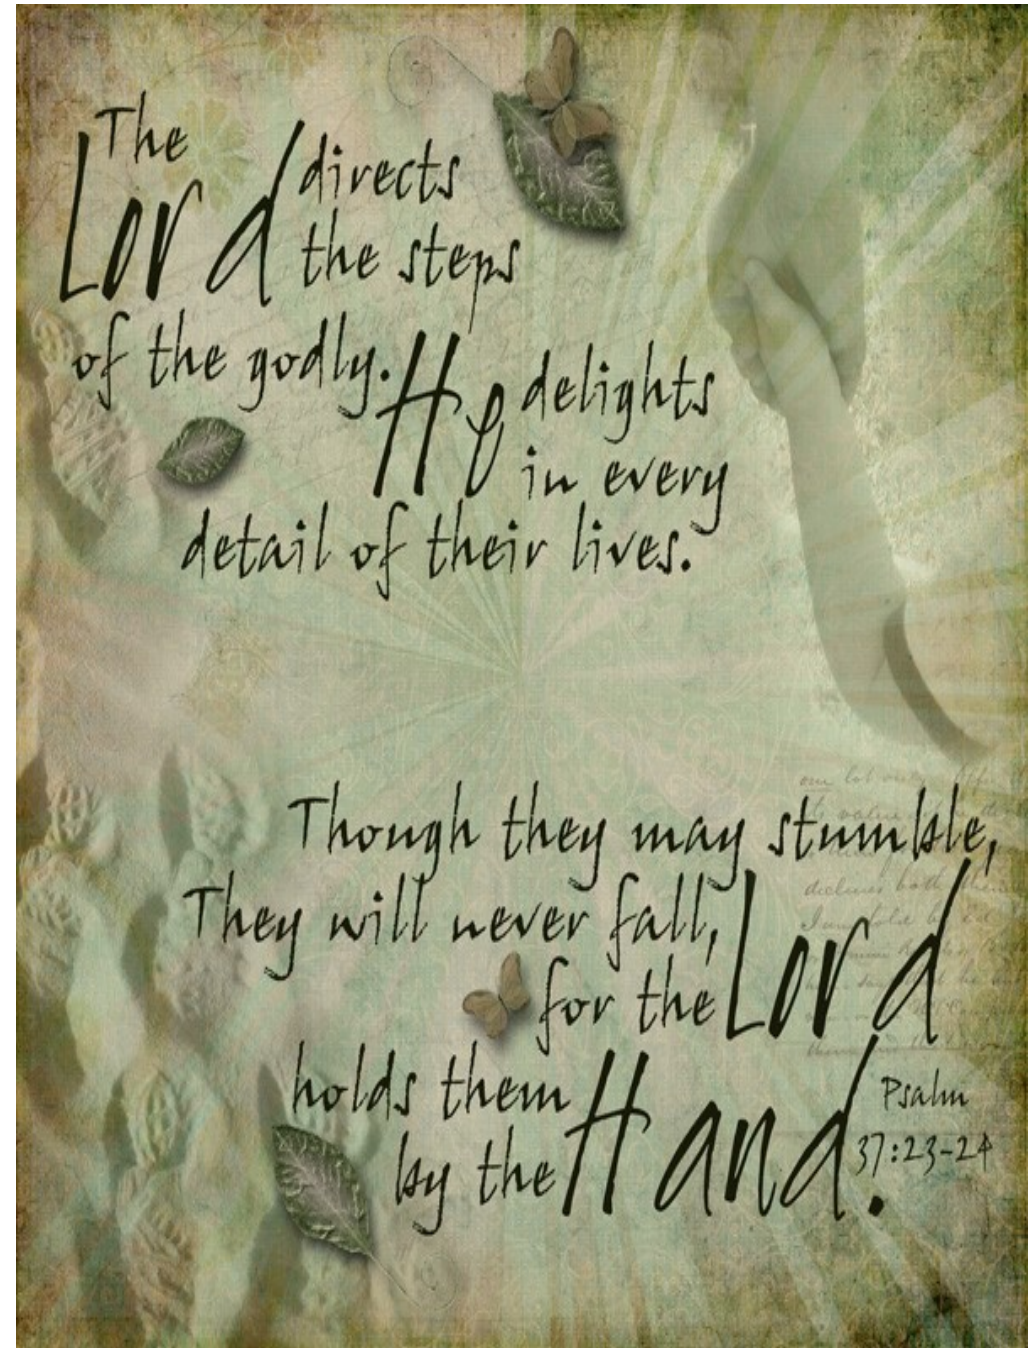 The
Lord directs
the steps
of the godly.
He delights
in every
detail of their lives.
Though they may stumble,
They will never fall,
for the Lord
holds them
by the Hand.
Psalm
37:23-24